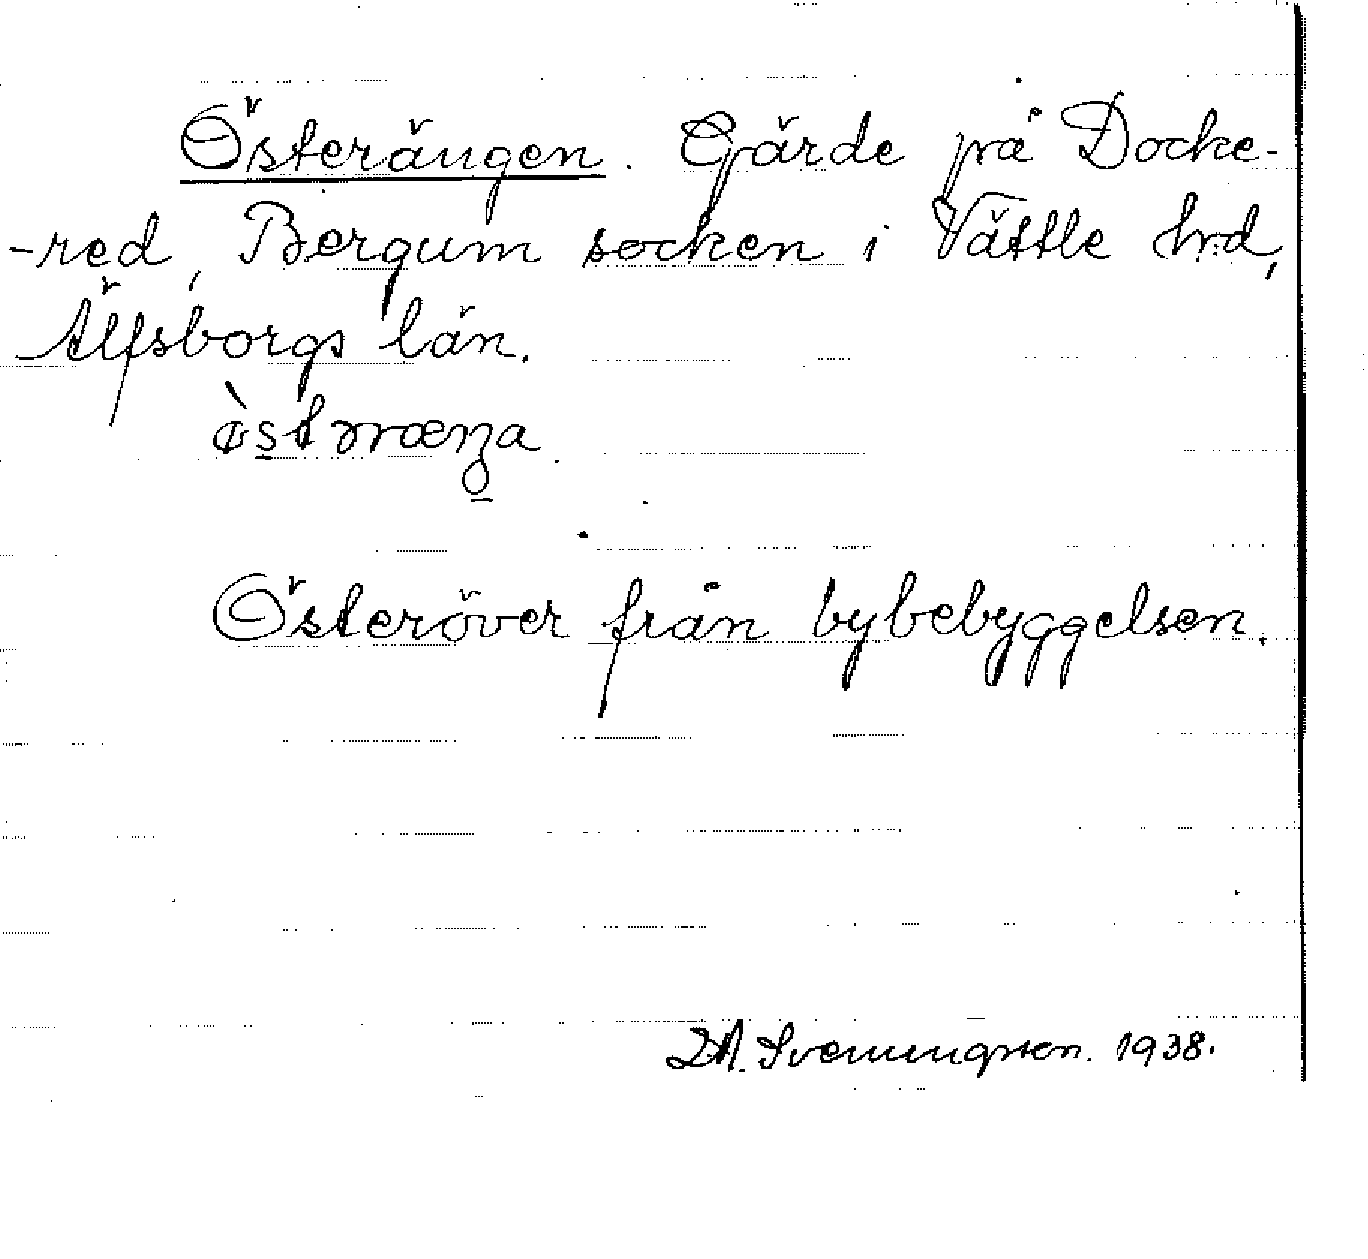 Österängen. Gärde på Docke-
-red, Bergum socken i Vättle hrd,
Älfsborgs län.
Österöver från bybebyggelsen.
Svenungsson. 1938.